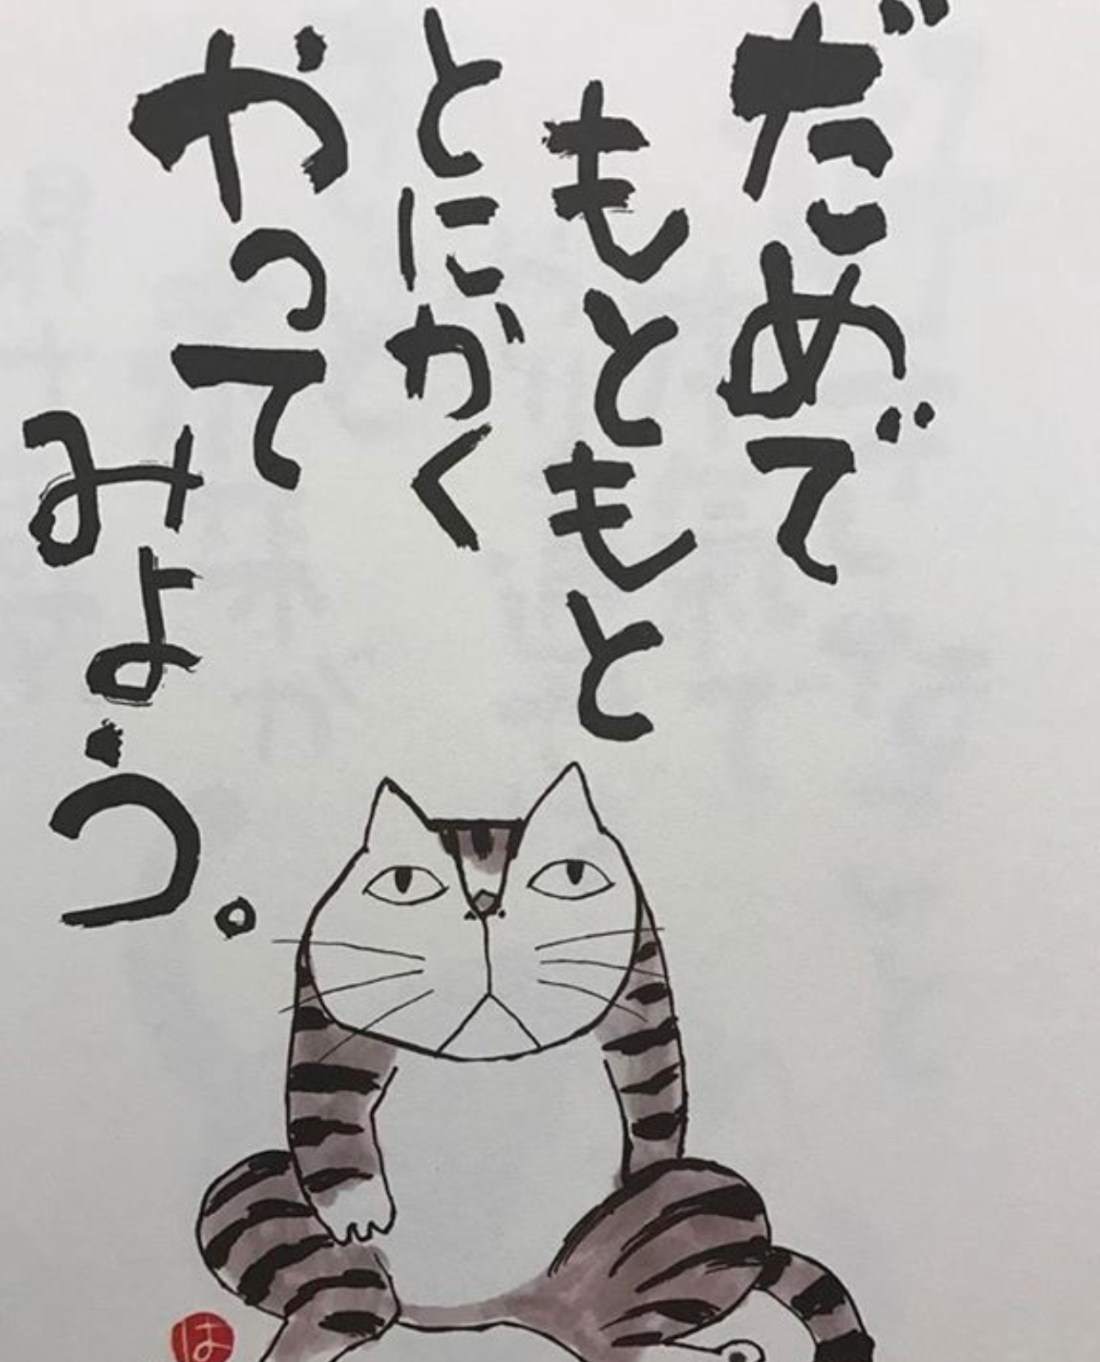 だめで
もともと
とにかく
やって
みよう。
は